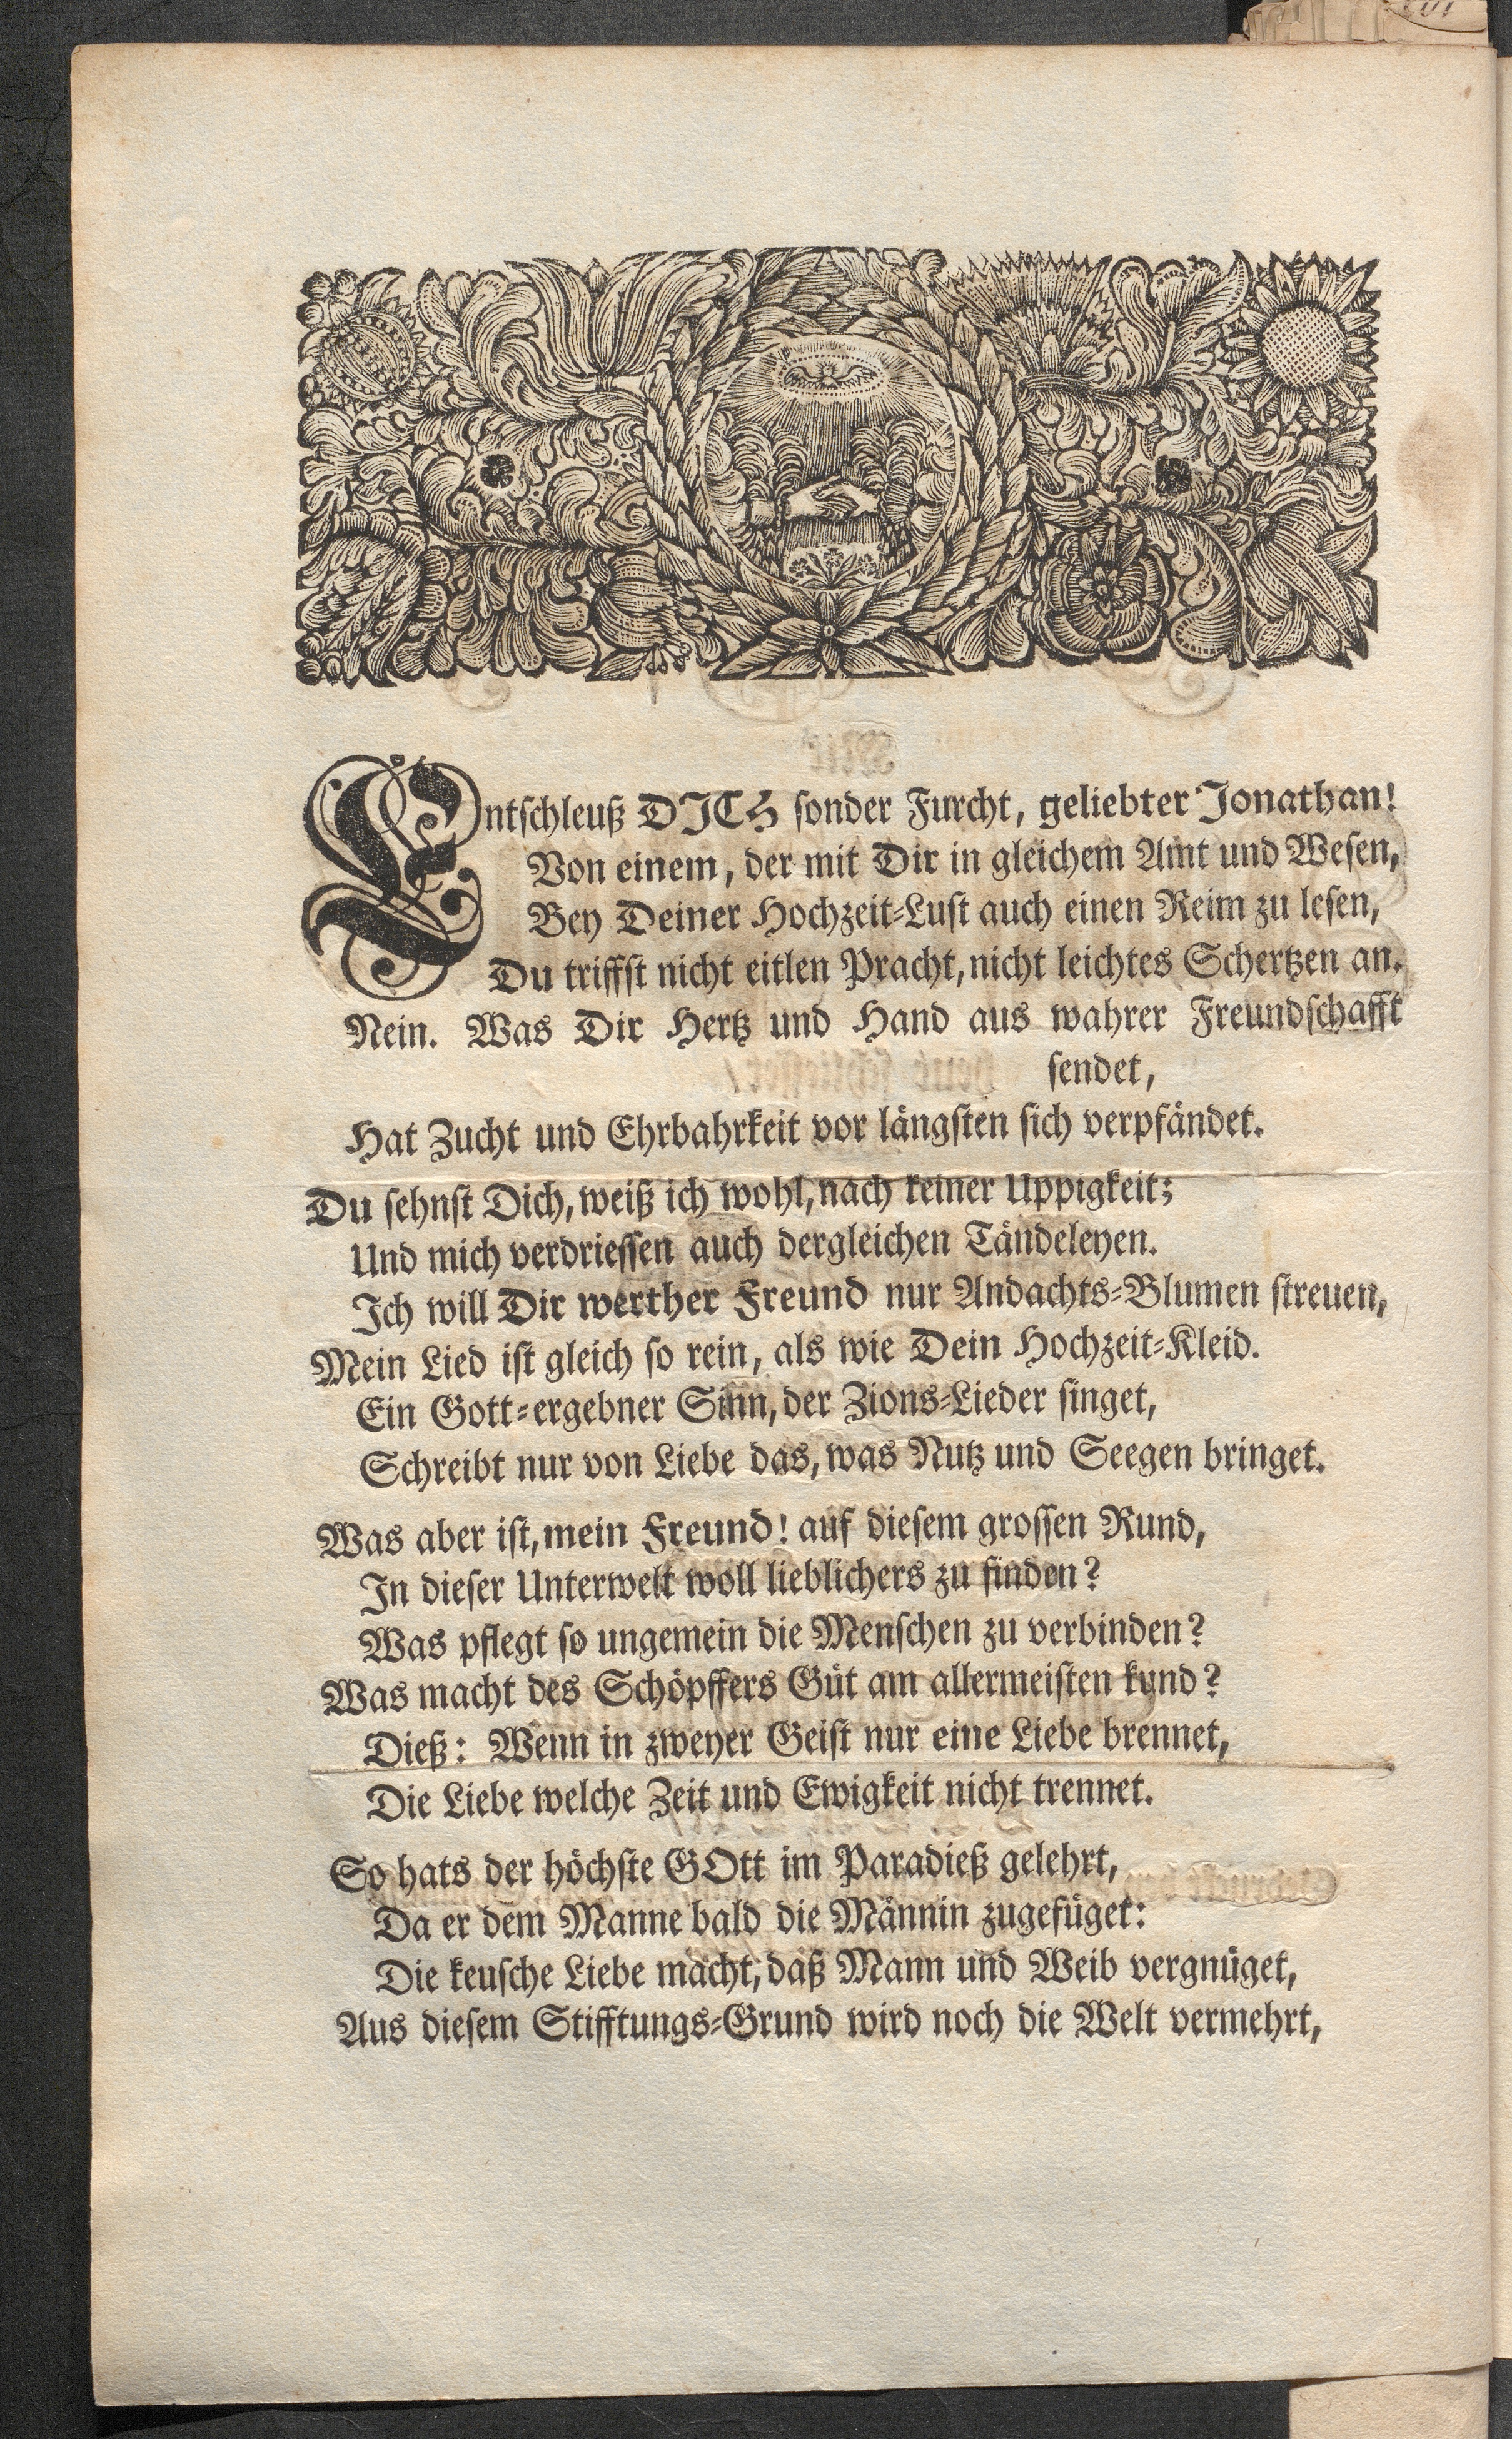 Entschleuß DJCH sonder Furcht, geliebter Jonathan!
Von einem, der mit Dir in gleichem Amt und Wesen,
Bey Deiner Hochzeit-Lust auch einen Reim zu lesen,
Du triffst nicht eitlen Pracht, nicht leichtes Schertzen an.
Nein. Was Dir Hertz und Hand aus wahrer Freundschafft
sendet,
Hat Zucht und Ehrbahrkeit vor längsten sich verpfändet.
Du sehnst Dich, weiß ich wohl, nach keiner Uppigkeit;
Und mich verdriessen auch dergleichen Tändeleyen.
Ich will Dir werther Freund nur Andachts-Blumen streuen,
Mein Lied ist gleich so rein, als wie Dein Hochzeit-Kleid.
Ein Gott-ergebner Sinn, der Zions-Lieder singet,
Schreibt nur von Liebe das, was Nutz und Seegen bringet.
Was aber ist, mein Freund! auf diesem grossen Rund,
In dieser Unterwelt woll lieblichers zu finden?
Was pflegt so ungemein die Menschen zu verbinden?
Was macht des Schöpffers Güt am allermeisten kund?
Dieß: Wenn in zweyer Geist nur eine Liebe brennet,
Die Liebe welche Zeit und Ewigkeit nicht trennet.
So hats der höchste GOtt im Paradieß gelehrt,
Da er dem Manne bald die Männin zugefüget:
Die keusche Liebe macht, daß Mann und Weib vergnüget,
Aus diesem Stifftungs-Grund wird noch die Welt vermehrt,